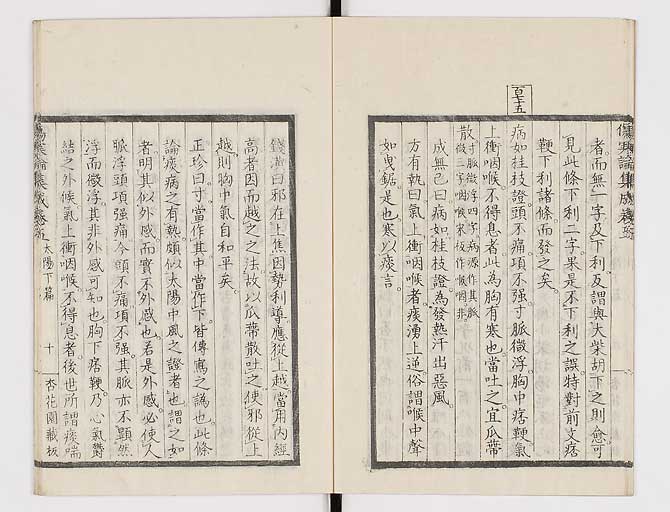 傷寒論集成卷五
者而無一字及下利及謂與大柴胡下之則愈可
見此條下利二字果是不下利之誤特對前文痞
鞕下利諸條而發之矣
百七十五
病如桂枝證頭不痛項不强寸脈微浮胸中痞鞕氣
上衝咽喉不得息者此為胸有寒也當吐之宜瓜蔕
散
寸脈微浮四字病源作其脈
微三字咽喉來板作喉咽非
成無己曰病如桂枝證為發熱汗出惡風
方有執曰氣上衝咽喉者痰湧上逆俗謂喉中聲
如曳鋸是也寒以痰言
錢潢曰邪在上焦因勢利導應從上越當用內經
高者因而越之之法故以瓜蔕散吐之使邪從上
越則胸中氣自和平矣
正珍曰寸當作其中當作下皆傳寫之譌也此條
論痰病之有熱頗似太陽中風之證者也謂之如
者明其似外感而實不外感也若是外感必使人
脈浮頭項强痛今頭不痛項不强其脈亦不顯然
浮而微浮其非外感可知也胸下痞鞕乃心氣鬱
結之外候氣上衝咽喉不得息者後世所謂痰喘
傷寒論集成卷五 太陽下篇 十 杏花園藏板